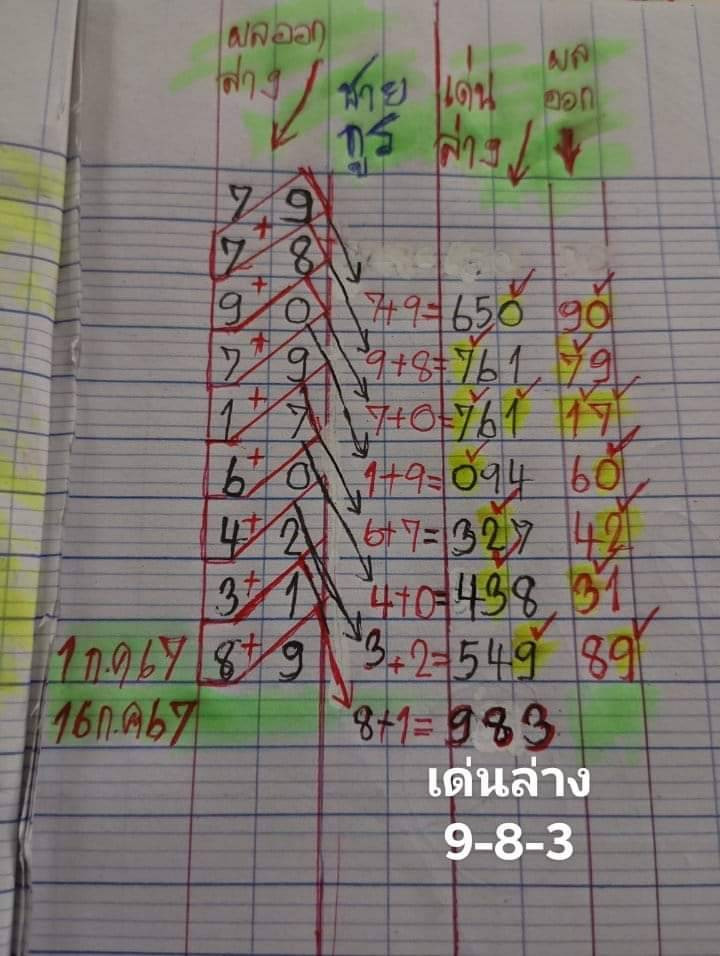 ผลออก ชาย เด่น ผล
ล่าง กูร ล่าง ออก
7 9
7 + 8
9 + 0 7+9= 650 90
7 + 9 9+8= 761 79
1 + 7 7+0= 761 17
6 + 0 1+9= 094 60
4 + 2 6+7= 327 42
3 + 1 4+0= 438 31
1ก.ค67 8 + 9 3+2= 549 89
16ก.ค67 8+1= 983
เด่นล่าง
9-8-3